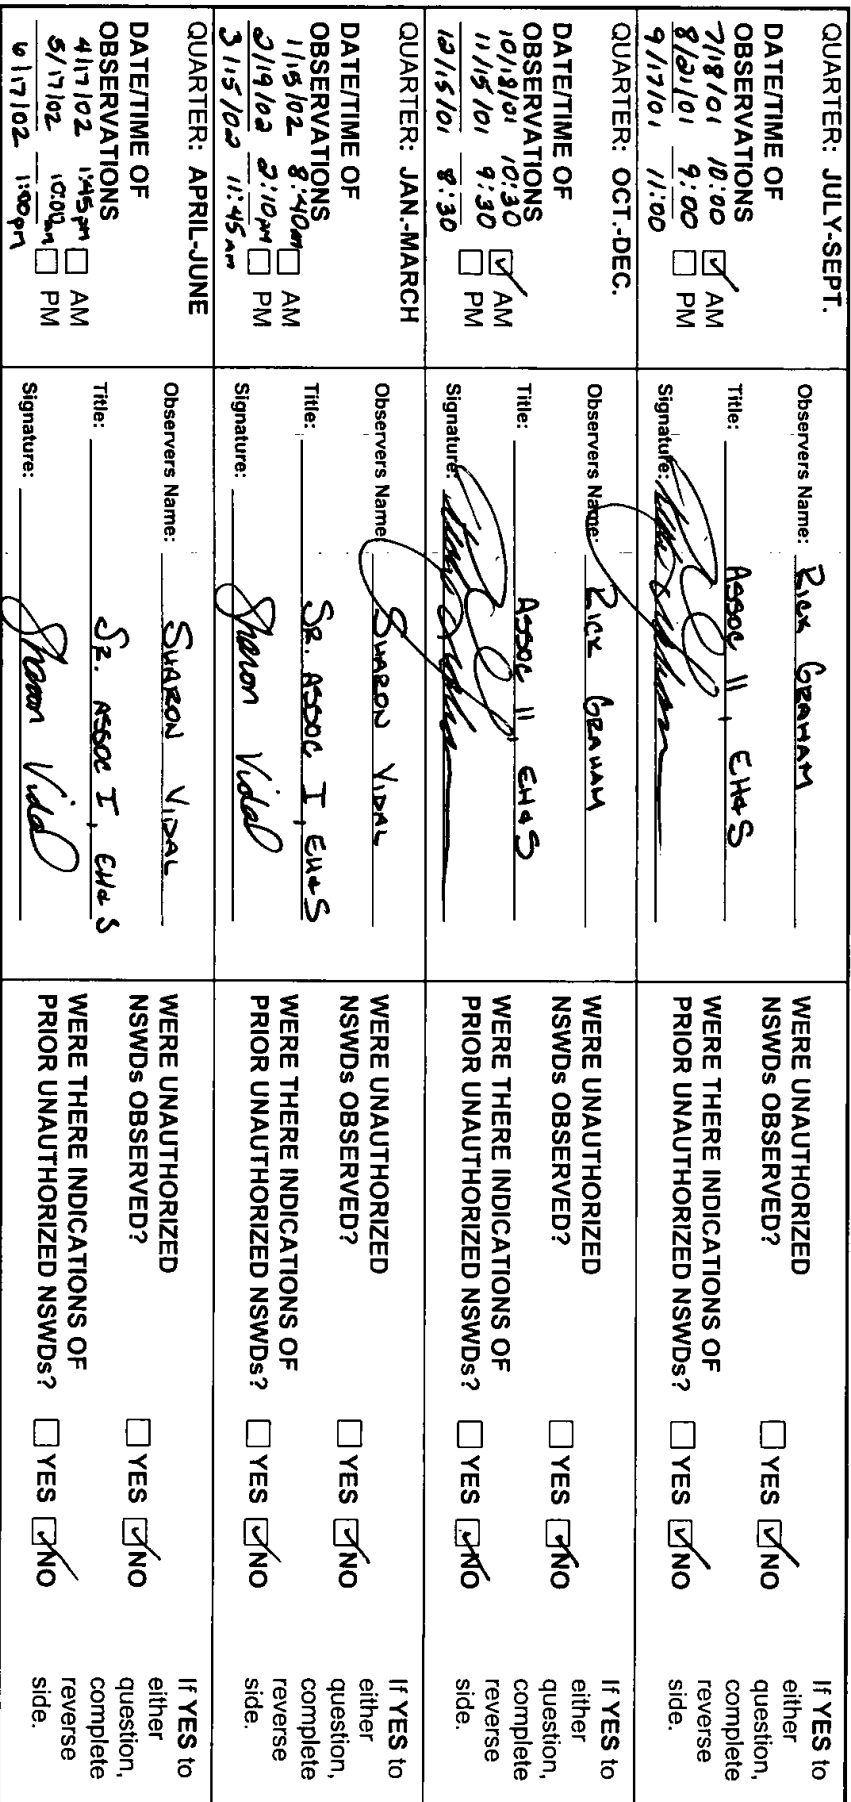 QUARTER: JULY-SEPT.
DATE/TIME OF
OBSERVATIONS
7/18/01 10:00 ☑ AM
8/21/01 9:00 ☐ PM
9/17/01 11:00
Observers Name: RICK GRAHAM
Title: ASSOC II, EH&S
Signature:
WERE UNAUTHORIZED
NSWDs OBSERVED? ☐ YES ☑ NO
WERE THERE INDICATIONS OF
PRIOR UNAUTHORIZED NSWDs? ☐ YES ☑ NO
If YES to
either
question,
complete
reverse
side.
QUARTER: OCT.-DEC.
DATE/TIME OF
OBSERVATIONS
10/18/01 10:30 ☑ AM
11/15/01 9:30 ☐ PM
12/15/01 8:30
Observers Name: RICK GRAHAM
Title: ASSOC II, EH&S
Signature:
WERE UNAUTHORIZED
NSWDs OBSERVED? ☐ YES ☑ NO
WERE THERE INDICATIONS OF
PRIOR UNAUTHORIZED NSWDs? ☐ YES ☑ NO
If YES to
either
question,
complete
reverse
side.
QUARTER: JAN.-MARCH
DATE/TIME OF
OBSERVATIONS
1/15/02 8:40am ☐ AM
2/19/02 2:10pm ☐ PM
3/15/02 11:45am
Observers Name: SHARON VIDAL
Title: SR. ASSOC I, EH&S
Signature: Sharon Vidal
WERE UNAUTHORIZED
NSWDs OBSERVED? ☐ YES ☑ NO
WERE THERE INDICATIONS OF
PRIOR UNAUTHORIZED NSWDs? ☐ YES ☑ NO
If YES to
either
question,
complete
reverse
side.
QUARTER: APRIL-JUNE
DATE/TIME OF
OBSERVATIONS
4/17/02 1:45pm ☐ AM
5/17/02 10:00am ☐ PM
6/17/02 1:00pm
Observers Name: SHARON VIDAL
Title: SR. ASSOC I, EH&S
Signature: Sharon Vidal
WERE UNAUTHORIZED
NSWDs OBSERVED? ☐ YES ☑ NO
WERE THERE INDICATIONS OF
PRIOR UNAUTHORIZED NSWDs? ☐ YES ☑ NO
If YES to
either
question,
complete
reverse
side.